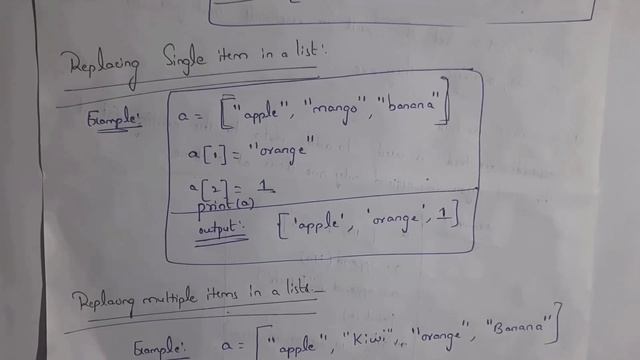 Replacing Single item in a list:
Example: a = ["apple", "mango", "banana"]
a[1] = "orange"
a[2] = 1
print(a)
output: ['apple', 'orange', 1]
Replacing multiple items in a list:
Example: a = ["apple", "Kiwi", "orange", "Banana"]